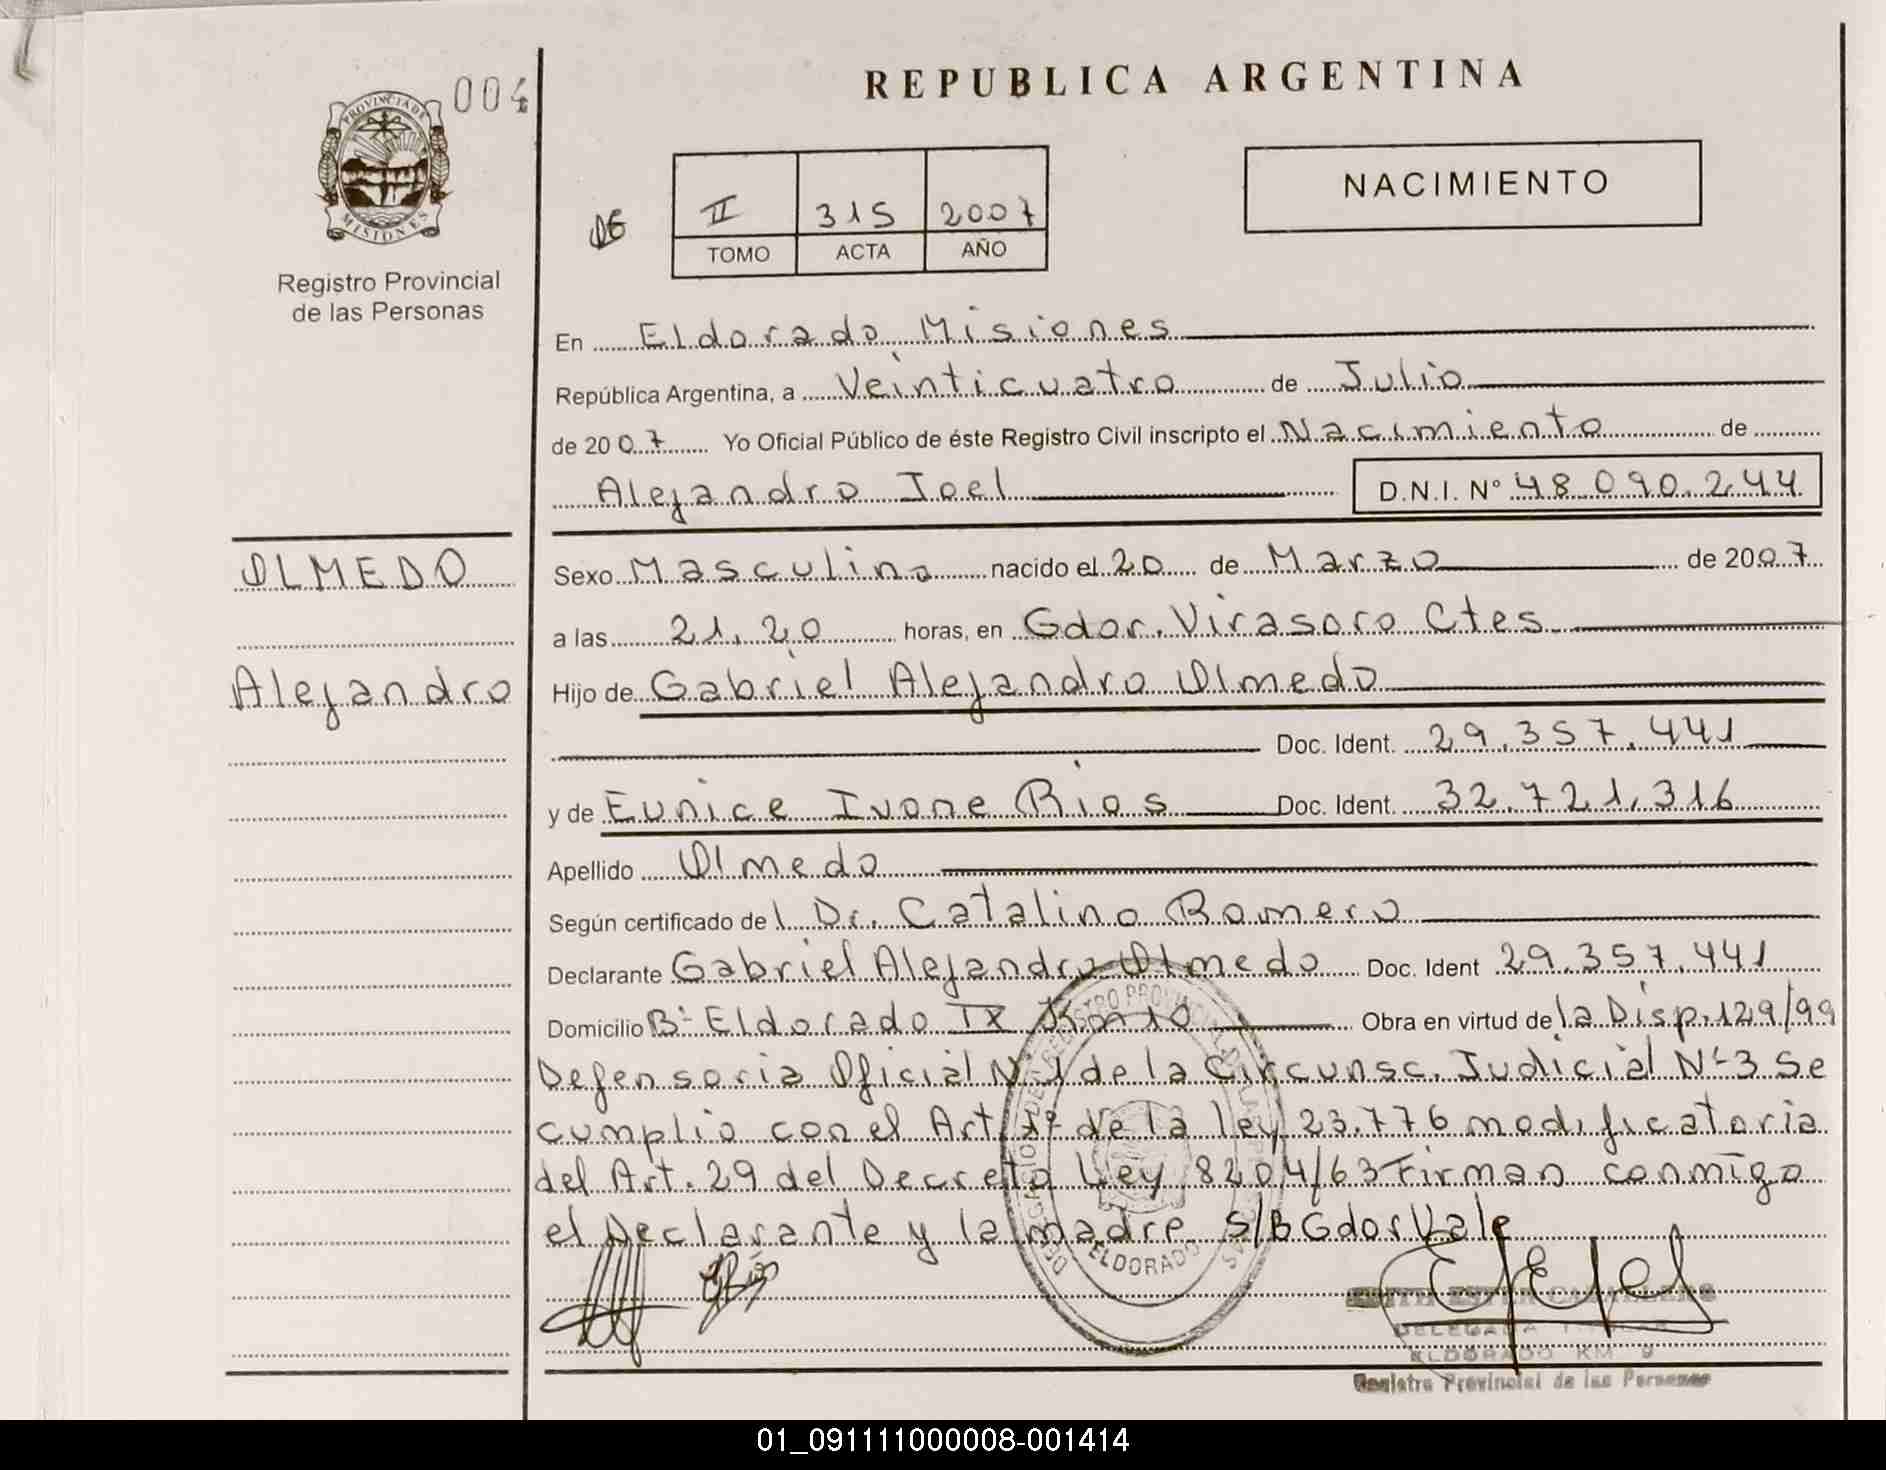 004
PROVINCIA DE
MISIONES
Registro Provincial
de las Personas
REPUBLICA ARGENTINA
NACIMIENTO
II 315 2007
TOMO ACTA AÑO
En Eldorado Misiones
República Argentina, a Veinticuatro de Julio
de 2007 Yo Oficial Público de éste Registro Civil inscripto el Nacimiento de
Alejandro Joel D.N.I. N° 48.090.244
OLMEDO
Alejandro
Sexo Masculino nacido el 20 de Marzo de 2007
a las 21,20 horas, en Gdor. Virasoro Ctes
Hijo de Gabriel Alejandro Olmedo
Doc. Ident. 29.357.441
y de Eunice Ivone Rios Doc. Ident. 32.721.316
Apellido Olmedo
Según certificado del Dr. Catalino Romero
Declarante Gabriel Alejandro Olmedo Doc. Ident 29.357.441
Domicilio Bº Eldorado IX Km 10 Obra en virtud de la Disp. 129/99
Defensoria Oficial Nº 1 de la Circunsc. Judicial Nº 3 Se
cumplio con el Art. 1º de la ley 23.776 modificatoria
del Art. 29 del Decreto Ley 8204/63 Firman conmigo
el Declarante y la madre S/B Gdor Vale
ELDORADO
DELEGADA TITULAR
ELDORADO KM 9
Registro Provincial de las Personas
01_091111000008-001414